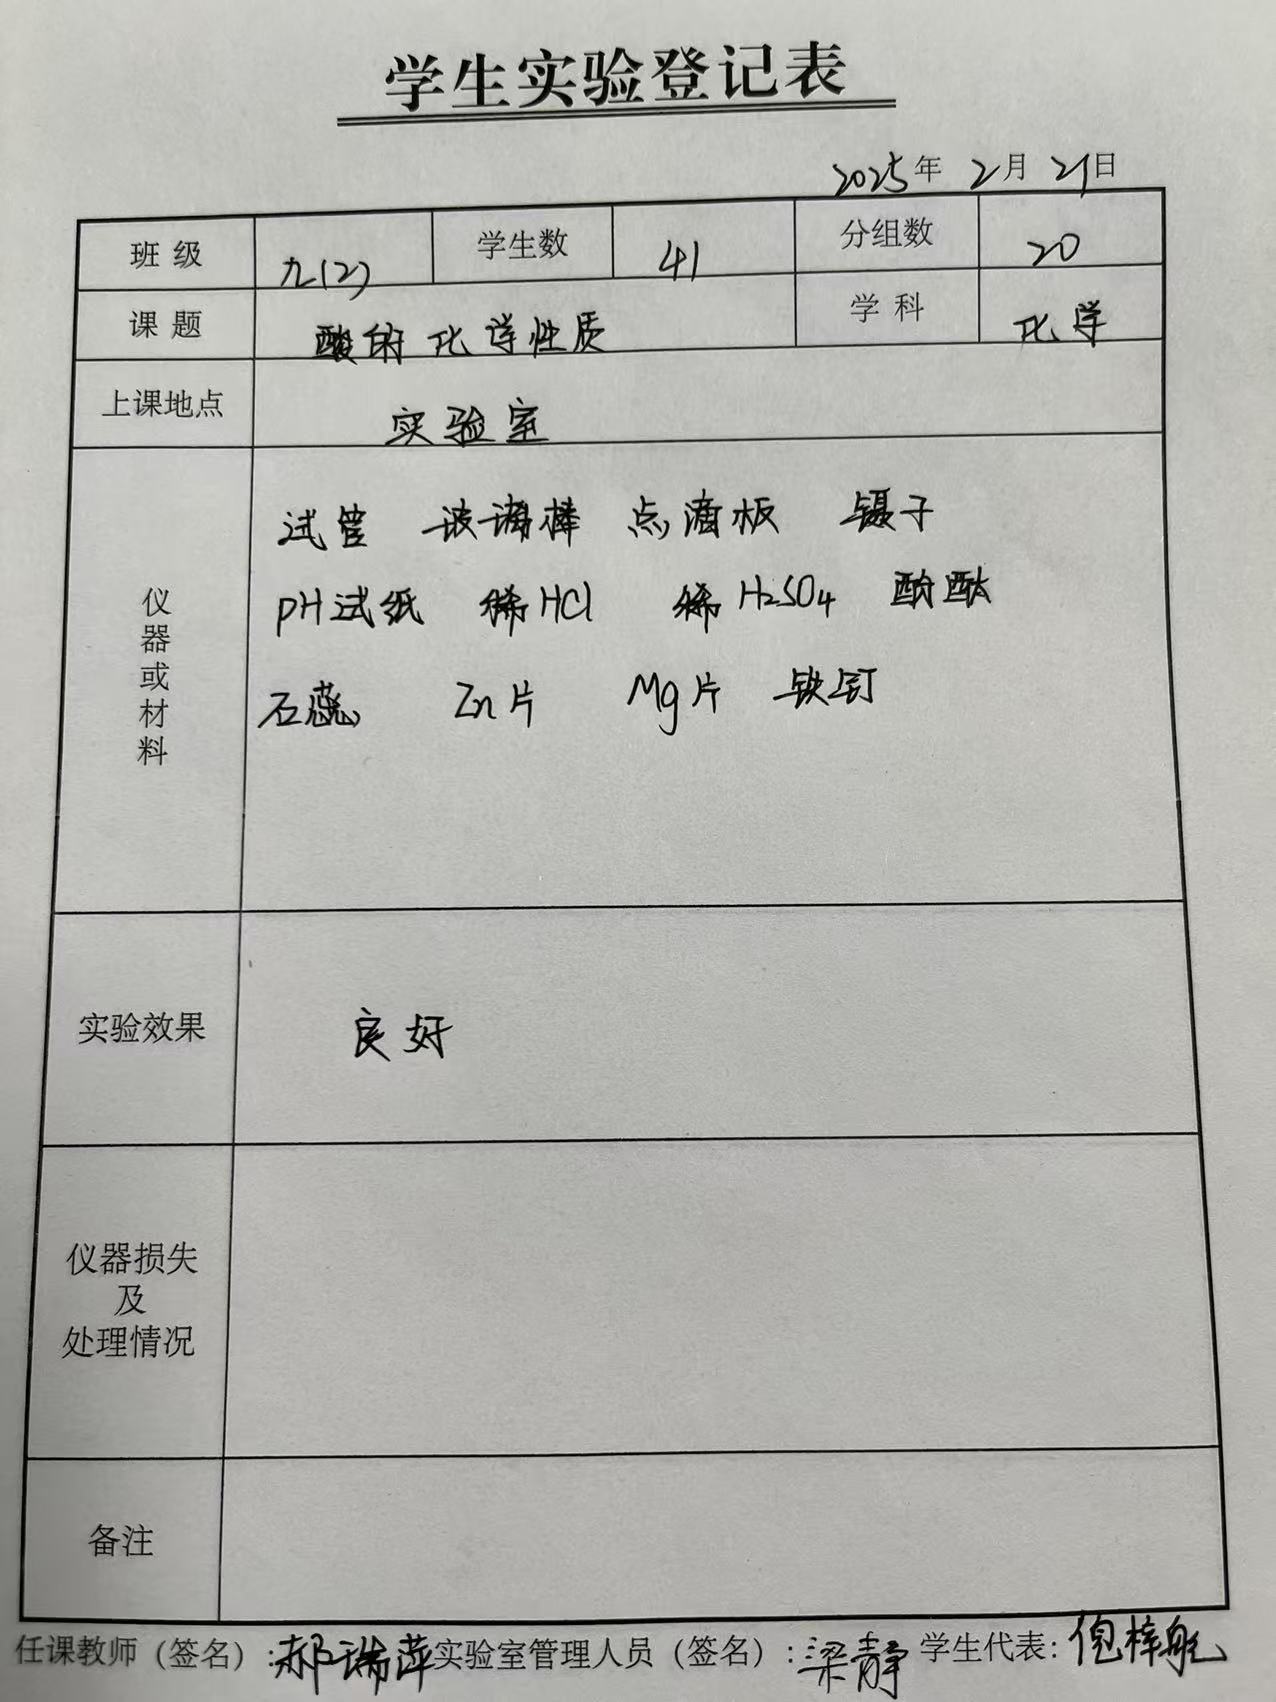 学生实验登记表
2025年 2月 21日
班级 九(2) 学生数 41 分组数 20
课题 酸的化学性质 学科 化学
上课地点 实验室
仪器或材料
试管 玻璃棒 点滴板 镊子
pH试纸 稀HCl 稀H₂SO₄ 酚酞
石蕊 Zn片 Mg片 铁钉
实验效果 良好
仪器损失
及
处理情况
备注
任课教师（签名）:郝瑞萍 实验室管理人员（签名）:梁静 学生代表: